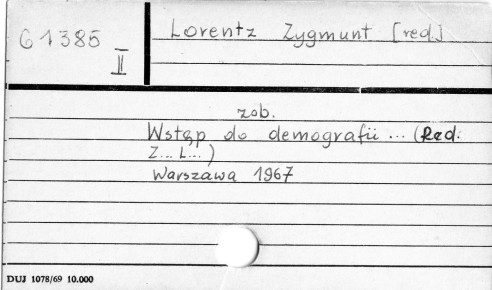 G 1385
II
Lorentz Zygmunt [red.]
zob.
Wstęp do demografii ... (Red.
Z... L... )
Warszawa 1967
DUJ 1078/69 10.000